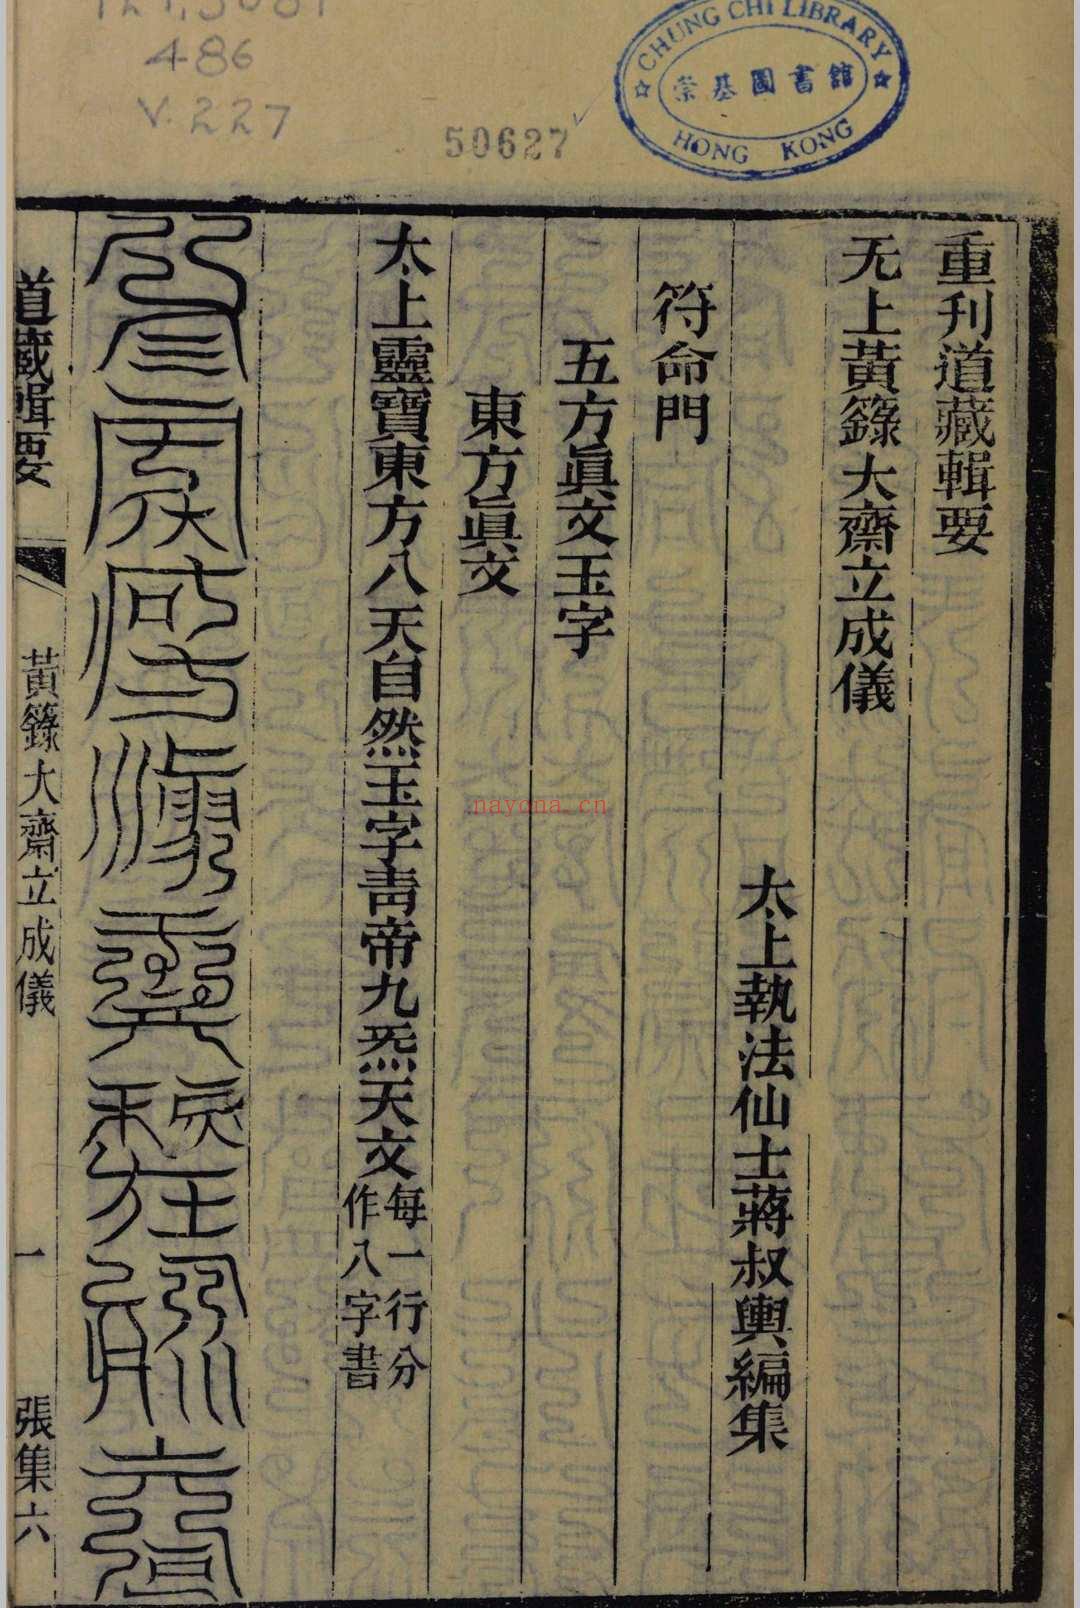 486
V.227
50627
CHUNG CHI LIBRARY
崇基圖書館
HONG KONG
重刊道藏輯要
无上黃籙大齋立成儀
太上執法仙士蔣叔輿編集
符命門
五方眞文玉字
東方眞文
太上靈寶東方八天自然玉字青帝九炁天文每一行分作八字書
道藏輯要
黃籙大齋立成儀
一
張集六
nayona.cn